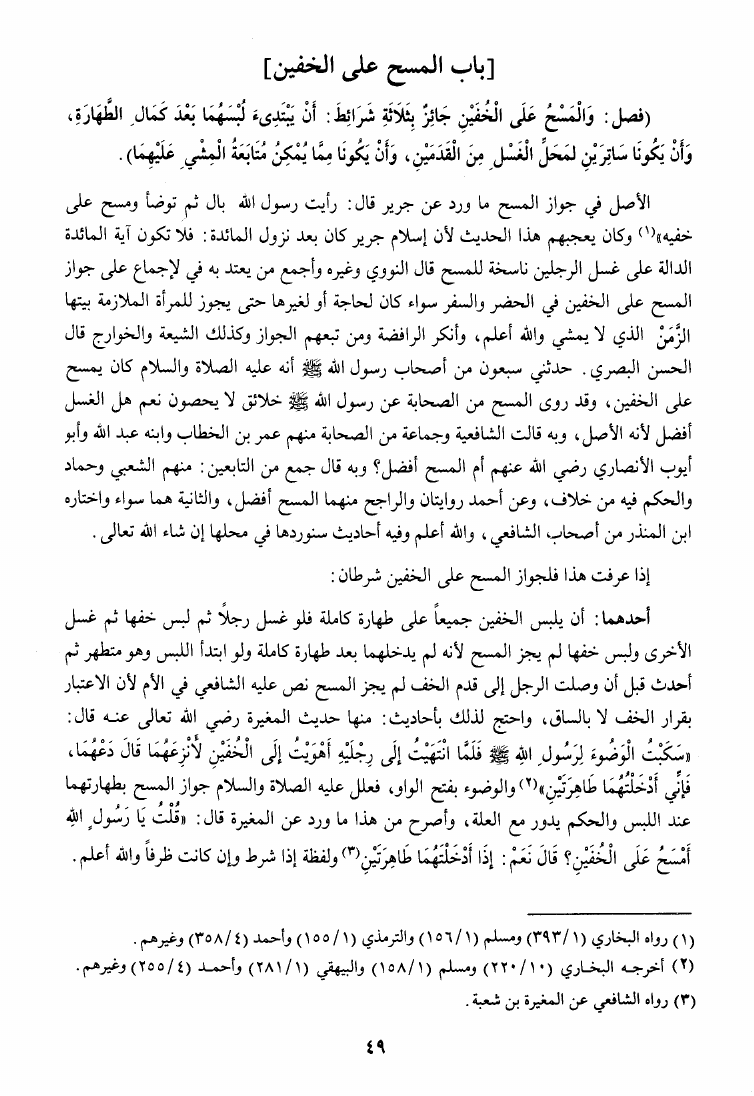 [باب المسح على الخفين]
(فصل: وَالْمَسْحُ عَلَى الْخُفَّيْنِ جَائِزٌ بِثَلَاثَةِ شَرَائِطَ: أَنْ يَبْتَدِىءَ لُبْسَهُمَا بَعْدَ كَمَالِ الطَّهَارَةِ،
وَأَنْ يَكُونَا سَاتِرَيْنِ لمَحَلِّ الْغَسْلِ مِنَ الْقَدَمَيْنِ، وَأَنْ يَكُونَا مِمَّا يُمْكِنُ مُتَابَعَةُ الْمِشْيِ عَلَيْهِمَا).
الأصل في جواز المسح ما ورد عن جرير قال: رأيت رسول الله بال ثم توضأ ومسح على
خفيه»(١) وكان يعجبهم هذا الحديث لأن إسلام جرير كان بعد نزول المائدة: فلا تكون آية المائدة
الدالة على غسل الرجلين ناسخة للمسح قال النووي وغيره وأجمع من يعتد به في لإجماع على جواز
المسح على الخفين في الحضر والسفر سواء كان لحاجة أو لغيرها حتى يجوز للمرأة الملازمة بيتها
الزَّمَنْ الذي لا يمشي والله أعلم، وأنكر الرافضة ومن تبعهم الجواز وكذلك الشيعة والخوارج قال
الحسن البصري. حدثني سبعون من أصحاب رسول الله ﷺ أنه عليه الصلاة والسلام كان يمسح
على الخفين، وقد روى المسح من الصحابة عن رسول الله ﷺ خلائق لا يحصون نعم هل الغسل
أفضل لأنه الأصل، وبه قالت الشافعية وجماعة من الصحابة منهم عمر بن الخطاب وابنه عبد الله وأبو
أيوب الأنصاري رضي الله عنهم أم المسح أفضل؟ وبه قال جمع من التابعين: منهم الشعبي وحماد
والحكم فيه من خلاف، وعن أحمد روايتان والراجح منهما المسح أفضل، والثانية هما سواء واختاره
ابن المنذر من أصحاب الشافعي، والله أعلم وفيه أحاديث سنوردها في محلها إن شاء الله تعالى.
إذا عرفت هذا فلجواز المسح على الخفين شرطان:
أحدهما: أن يلبس الخفين جميعاً على طهارة كاملة فلو غسل رجلًا ثم لبس خفها ثم غسل
الأخرى ولبس خفها لم يجز المسح لأنه لم يدخلهما بعد طهارة كاملة ولو ابتدأ اللبس وهو متطهر ثم
أحدث قبل أن وصلت الرجل إلى قدم الخف لم يجز المسح نص عليه الشافعي في الأم لأن الاعتبار
بقرار الخف لا بالساق، واحتج لذلك بأحاديث: منها حديث المغيرة رضي الله تعالى عنه قال:
«سَكَبْتُ الْوَضُوءَ لِرَسُولِ اللهِ ﷺ فَلَمَّا انْتَهَيْتُ إلَى رِجْلَيْهِ أَهْوَيْتُ إلَى الْخُفَّيْنِ لأَنْزِعَهُمَا قَالَ دَعْهُمَا،
فَإنِّي أَدْخَلْتُهُمَا طَاهِرَتَيْنِ»(٢) والوضوء بفتح الواو، فعلل عليه الصلاة والسلام جواز المسح بطهارتهما
عند اللبس والحكم يدور مع العلة، وأصرح من هذا ما ورد عن المغيرة قال: «قُلْتُ يَا رَسُولَ اللهِ
أَمْسَحُ عَلَى الْخُفَّيْنِ؟ قَالَ نَعَمْ: إذَا أَدْخَلْتَهُمَا طَاهِرَتَيْنِ(٣) ولفظة إذا شرط وإن كانت ظرفاً والله أعلم.
(١) رواه البخاري (٣٩٣/١) ومسلم (١٥٦/١) والترمذي (١٥٥/١) وأحمد (٣٥٨/٤) وغيرهم.
(٢) أخرجه البخاري (٢٢٠/١٠) ومسلم (١٥٨/١) والبيهقي (٢٨١/١) وأحمد (٢٥٥/٤) وغيرهم.
(٣) رواه الشافعي عن المغيرة بن شعبة.
٤٩